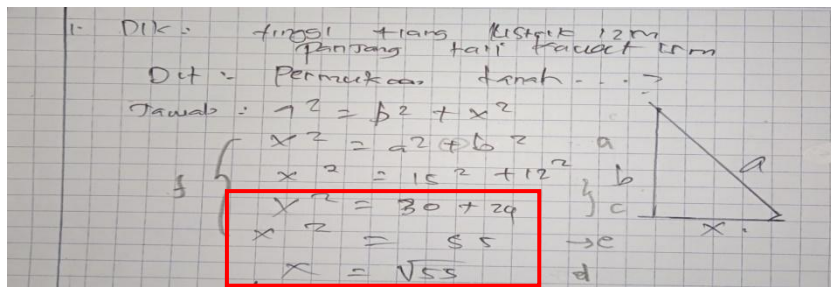 1. Dik : tinggi tiang listrik 12 m
panjang tali kawat 15 m
Dit : Permukaan tanah . . . ?
Jawab : a² = b² + x²
x² = a² + b² a
x² = 15² + 12² } b
f { x² = 30 + 24 } c
x² = 55 → e
x = √55 d
a
x .